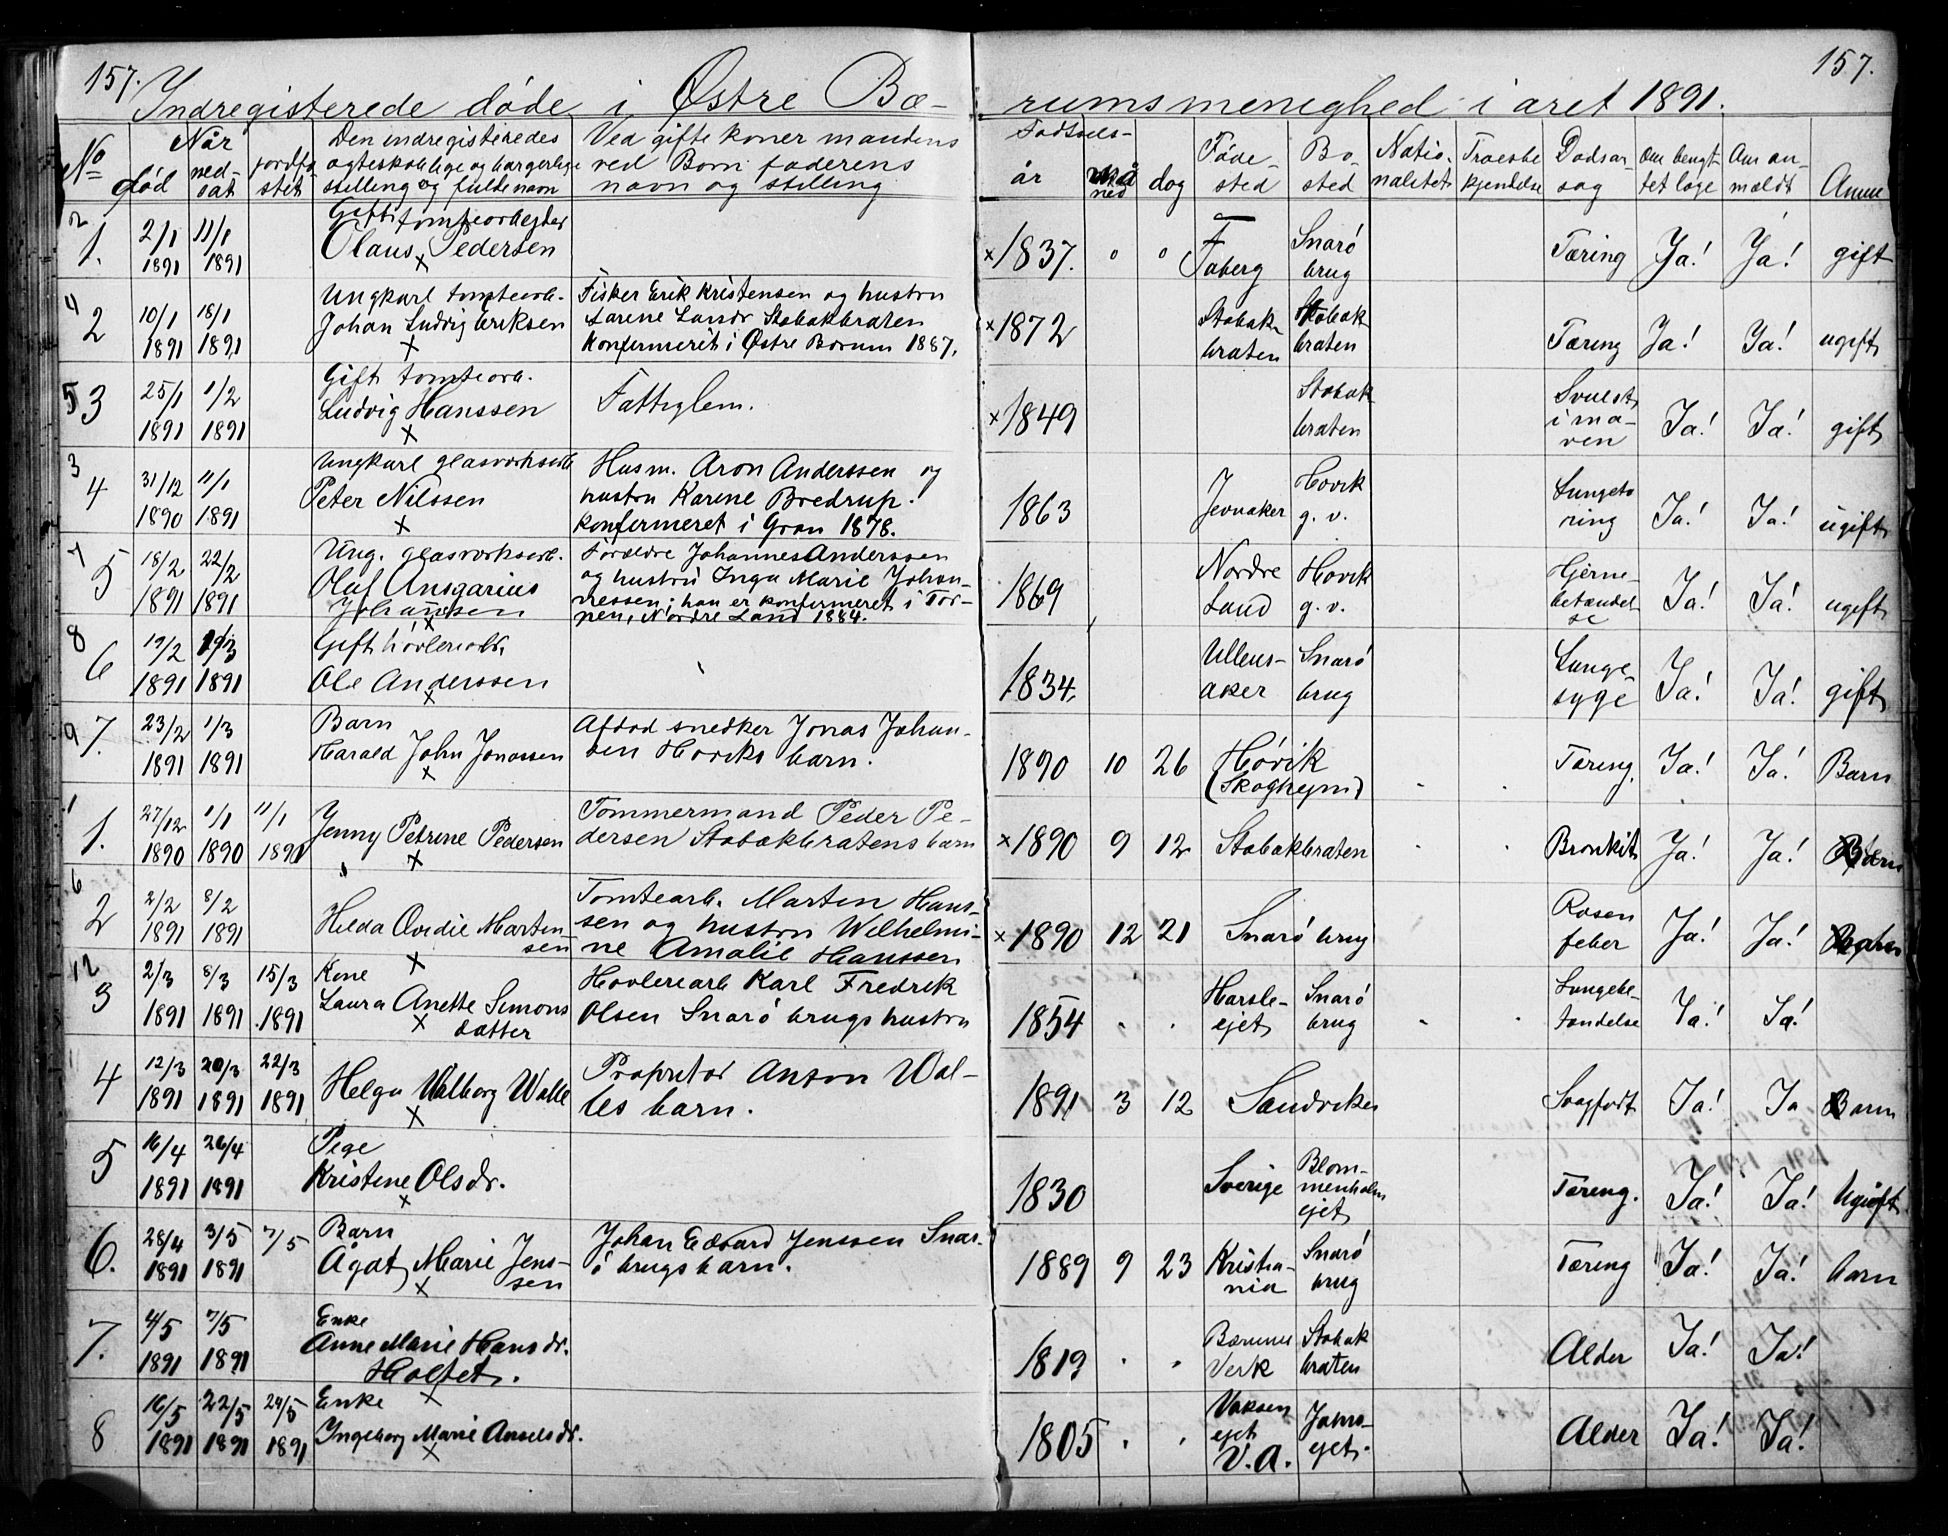 157.
157.
Indregisterede døde i Østre Bæ- rumsmenighed i året 1891.
No
Når
død
ned-
sat
jordfæ
stet
Den indregisteredes
ægteskabelige og borgerlige
stilling og fulde navn
Ved gifte koner mandens
ved Born faderens
navn og stilling
Fødsels-
år
må
ned
dag
Føde-
sted
Bo-
sted
Natio-
nalitet
Troesbe
kjendelse
Dødsår-
sag
Om bengt-
tet læge
Om an-
mældt
Anm
2 1. 2/1 1891 11/1 1891
Gift tomtearbejder
Olaus Pedersen
x
x1837. " " Faberg Snarø brug Tæring Ja! Ja! gift
4 2 10/1 1891 18/1 1891
Ungkarl tomtearb.
Johan Ludvig Eriksen
x
Fisker Erik Kristensen og hustru
Larine Larsdr Stabækbraten
Konfermeret i Østre Bærum 1887.
x1872 Stabæk-braten Stabæk braten Tæring Ja! Ja! ugift
5 3 25/1 1891 1/2 1891
Gift tomtearb.
Ludvig Hanssen
x
Fattiglem.
x1849 Stabæk braten Svulst i ma-ven Ja! Ja! gift
3 4 31/12 1890 11/1 1891
Ungkarl glasværksarb
Peter Nilssen
x
Husm. Aron Anderssen og
hustru Karine Bredrup.
konfermeret i Gran 1878.
1863 Jevnaker Høvik g. v. Lungetæ ring Ja! Ja! ugift
7 5 18/2 1891 22/2 1891
Ung. glasværksarb.
Olaf Ansgarius
Johanssen
x
Forældre Johannes Anderssen
og hustru Inga Marie Johan-
nessen; han er konfermeret i Tor-
pen, Nordre Land 1884.
1869 Nordre Land Høvik g. v. Hjerne-betændel-se Ja! Ja! ugift
8 6 19/2 1891 1/3 1891
Gift høvleriarb.
Ole Anderssen
x
1834. Ullens-aker Snarø brug Lunge-syge Ja! Ja! gift
9 7. 23/2 1891 1/3 1891
Barn
Harald John Jonassen
x
Afdød snedker Jonas Johan-
sen Høviks barn.
1890 10 26 Høvik (Skoghejm) Tæring. Ja! Ja! Barn
1 1. 27/12 1890 1/1 1890 11/1 1890
Jenny Petrine Pedersen
x
Tommermand Peder Pe-
dersen Stabækbratens barn
x1890 9 12 Stabækbraten Bronkit Ja! Ja! Barn
6 2 2/2 1891 8/2 1891
Hilda Ovidie Marten-
sen
x
Tomtearb. Marten Hans-
sen og hustru Wilhelmi-
ne Amalie Hanssen
x1890 12 21 Snarø brug Rosen feber Ja! Ja! Barn
12 3 2/3 1891 8/3 1891 15/3 1891
Kone
Laura Anette Simons
datter
x
Høvleriarb Karl Fredrik
Olsen Snarø brugs hustru
1854 " " Harsle-ejet Snarø brug Lungebe-tændelse Ja! Ja!
4 12/3 1891 20/3 1891 22/3 1891
Helga Valborg Walle
x
Propritær Anton Wal-
les barn.
1891 3 12 Sandviken Svagfødt Ja! Ja Barn
5 16/4 1891 26/4 1891
Pige
Kristine Olsdr.
x
1830 Sverige Blom-menholm ejet Tæring. Ja! Ja! Ugift
6. 28/4 1891 3/5 1891 7/5
Barn
Ågat Marie Jens-
sen
x
Johan Edvard Jenssen Snar-
ø brugs barn.
1889 9 23 Kristia-nia Snarø brug Tæring Ja! Ja! barn
7. 4/5 1891 7/5 1891
Enke
Anne Marie Hansdr.
Holtet.
x
1819 " " Bærums Verk Stabæk braten Alder Ja! Ja!
8 16/5 1891 22/5 1891 24/5 1891
Enke
Ingeborg Marie Anselsdr.
x
1805 " " Voksen ejet V. A. Jams-ejet. Alder Ja! Ja!